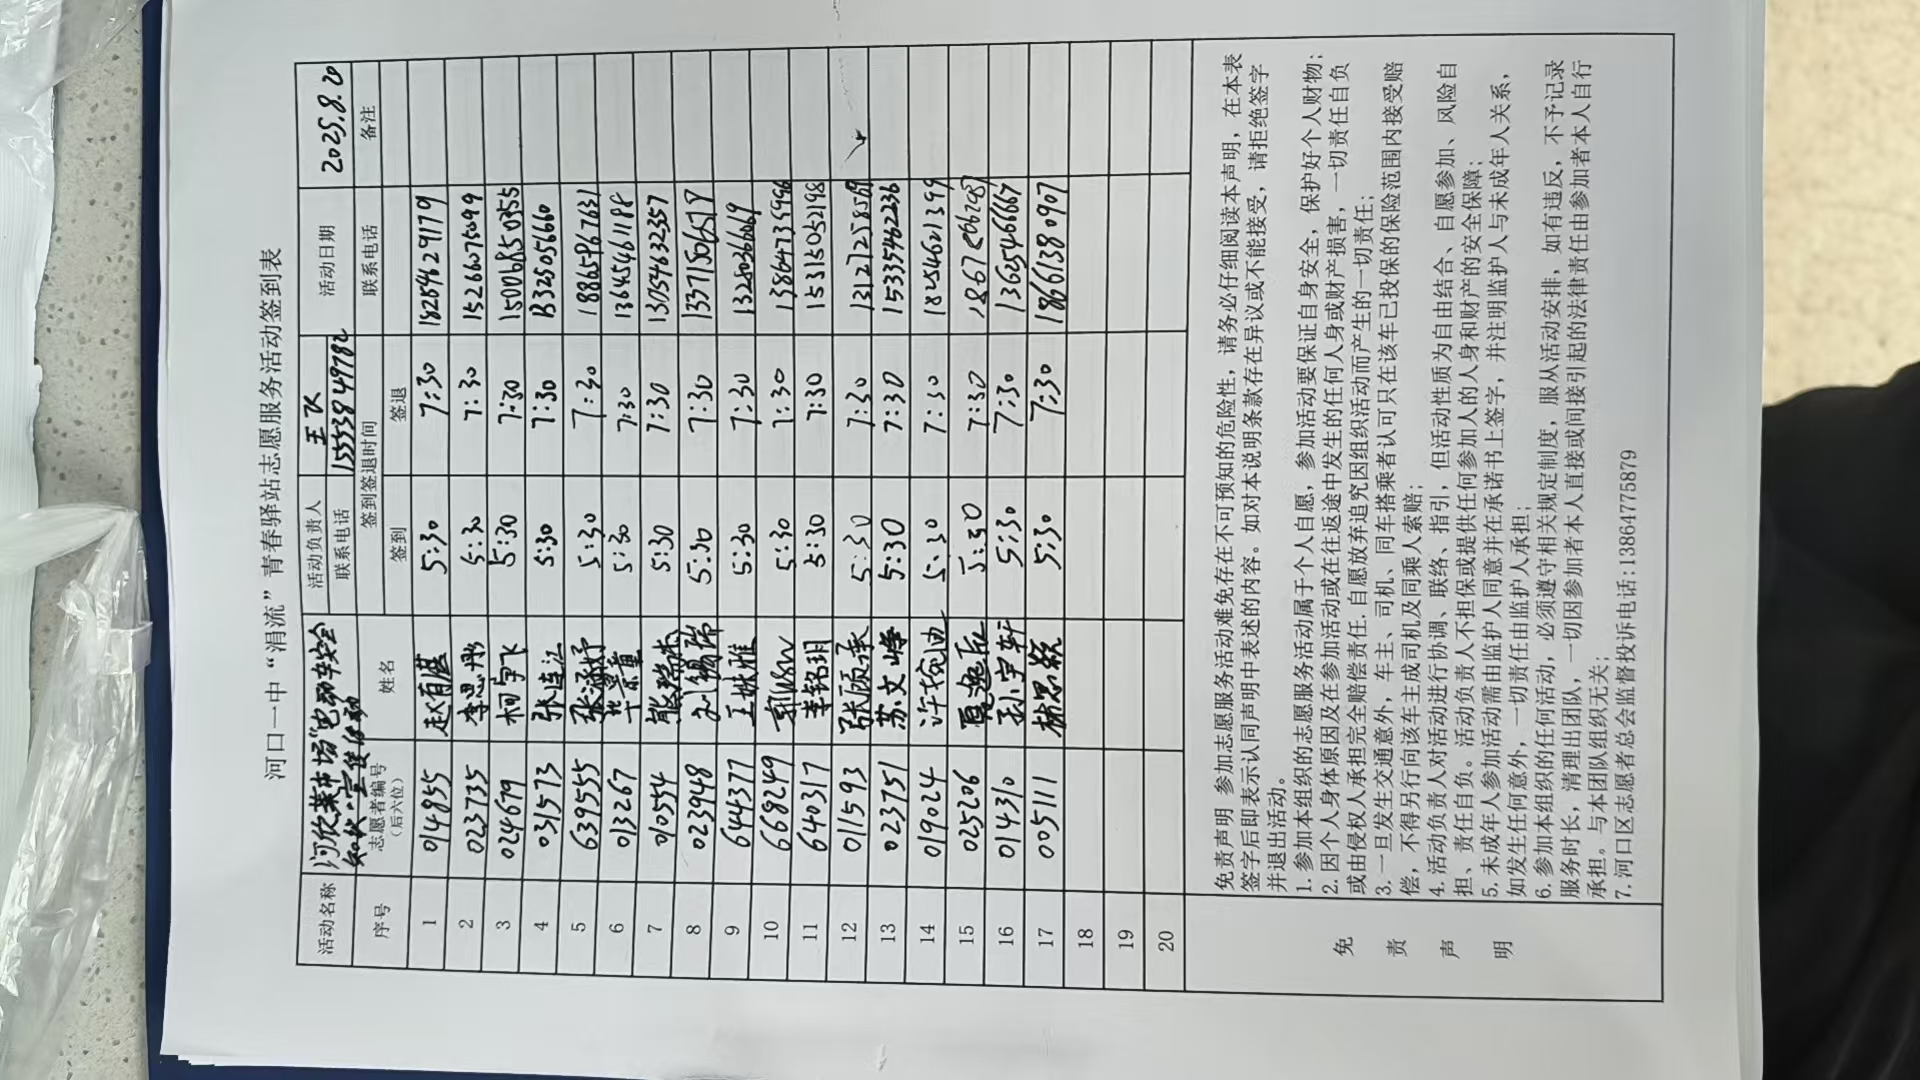 河口一中“涓流”青春驿站志愿服务活动签到表
活动名称 河欣菜市场“电动车安全知识”宣传活动 活动负责人 王飞 活动日期 2025.8.20
联系电话 15553849782
序号 志愿者编号(后六位) 姓名 签到签退时间 联系电话 备注
签到 签退
1 014855 赵有湛 5:30 7:30 18284629179
2 023735 李思彤 5:30 7:30 15266075099
3 024679 柯宇飞 5:30 7:30 15006850355
4 031573 张连江 5:30 7:30 13325056660
5 639555 张淑婷 5:30 7:30 18865967631
6 013267 5:30 7:30 13645461188
7 010554 熊瑞杰 5:30 7:30 13054632357
8 023948 刘锡瑞 5:30 7:30 13371506518
9 644377 王姝雅 5:30 7:30 13280366669
10 668249 5:30 7:30 13864735996
11 640317 李铭玥 5:30 7:30 15315052198
12 011593 张颀承 5:30 7:30 13127258569
13 023751 苏文峰 5:30 7:30 15335462236
14 019024 许宛迪 5:30 7:30 18254621399
15 025206 夏逸辰 5:30 7:30
16 014310 孙宇轩 5:30 7:30 13625466667
17 005111 林思颖 5:30 7:30 18661380907
18
19
20
免责声明
免责声明 参加志愿服务活动难免存在不可预知的危险性，请务必仔细阅读本声明，在本表
签字后即表示认同声明中表述的内容。如对本说明条款存在异议或不能接受，请拒绝签字
并退出活动。
1.参加本组织的志愿服务活动属于个人自愿，参加活动要保证自身安全，保护好个人财物；
2.因个人身体原因及在参加活动或在往返途中发生的任何人身或财产损害，一切责任自负
或由侵权人承担完全赔偿责任.自愿放弃追究因组织活动而产生的一切责任；
3.一旦发生交通意外，车主、司机、同车搭乘者认可只在该车已投保的保险范围内接受赔
偿，不得另行向该车主或司机及同乘人索赔；
4.活动负责人对活动进行协调、联络、指引，但活动性质为自由结合、自愿参加、风险自
担、责任自负。活动负责人不担保或提供任何参加人的人身和财产的安全保障；
5.未成年人参加活动需由监护人同意并在承诺书上签字，并注明监护人与未成年人关系，
如发生任何意外，一切责任由监护人承担；
6.参加本组织的任何活动，必须遵守相关规定制度，服从活动安排，如有违反，不予记录
服务时长，清理出团队，一切因参加者本人直接或间接引起的法律责任由参加者本人自行
承担。与本团队组织无关；
7.河口区志愿者总会监督投诉电话:13864775879